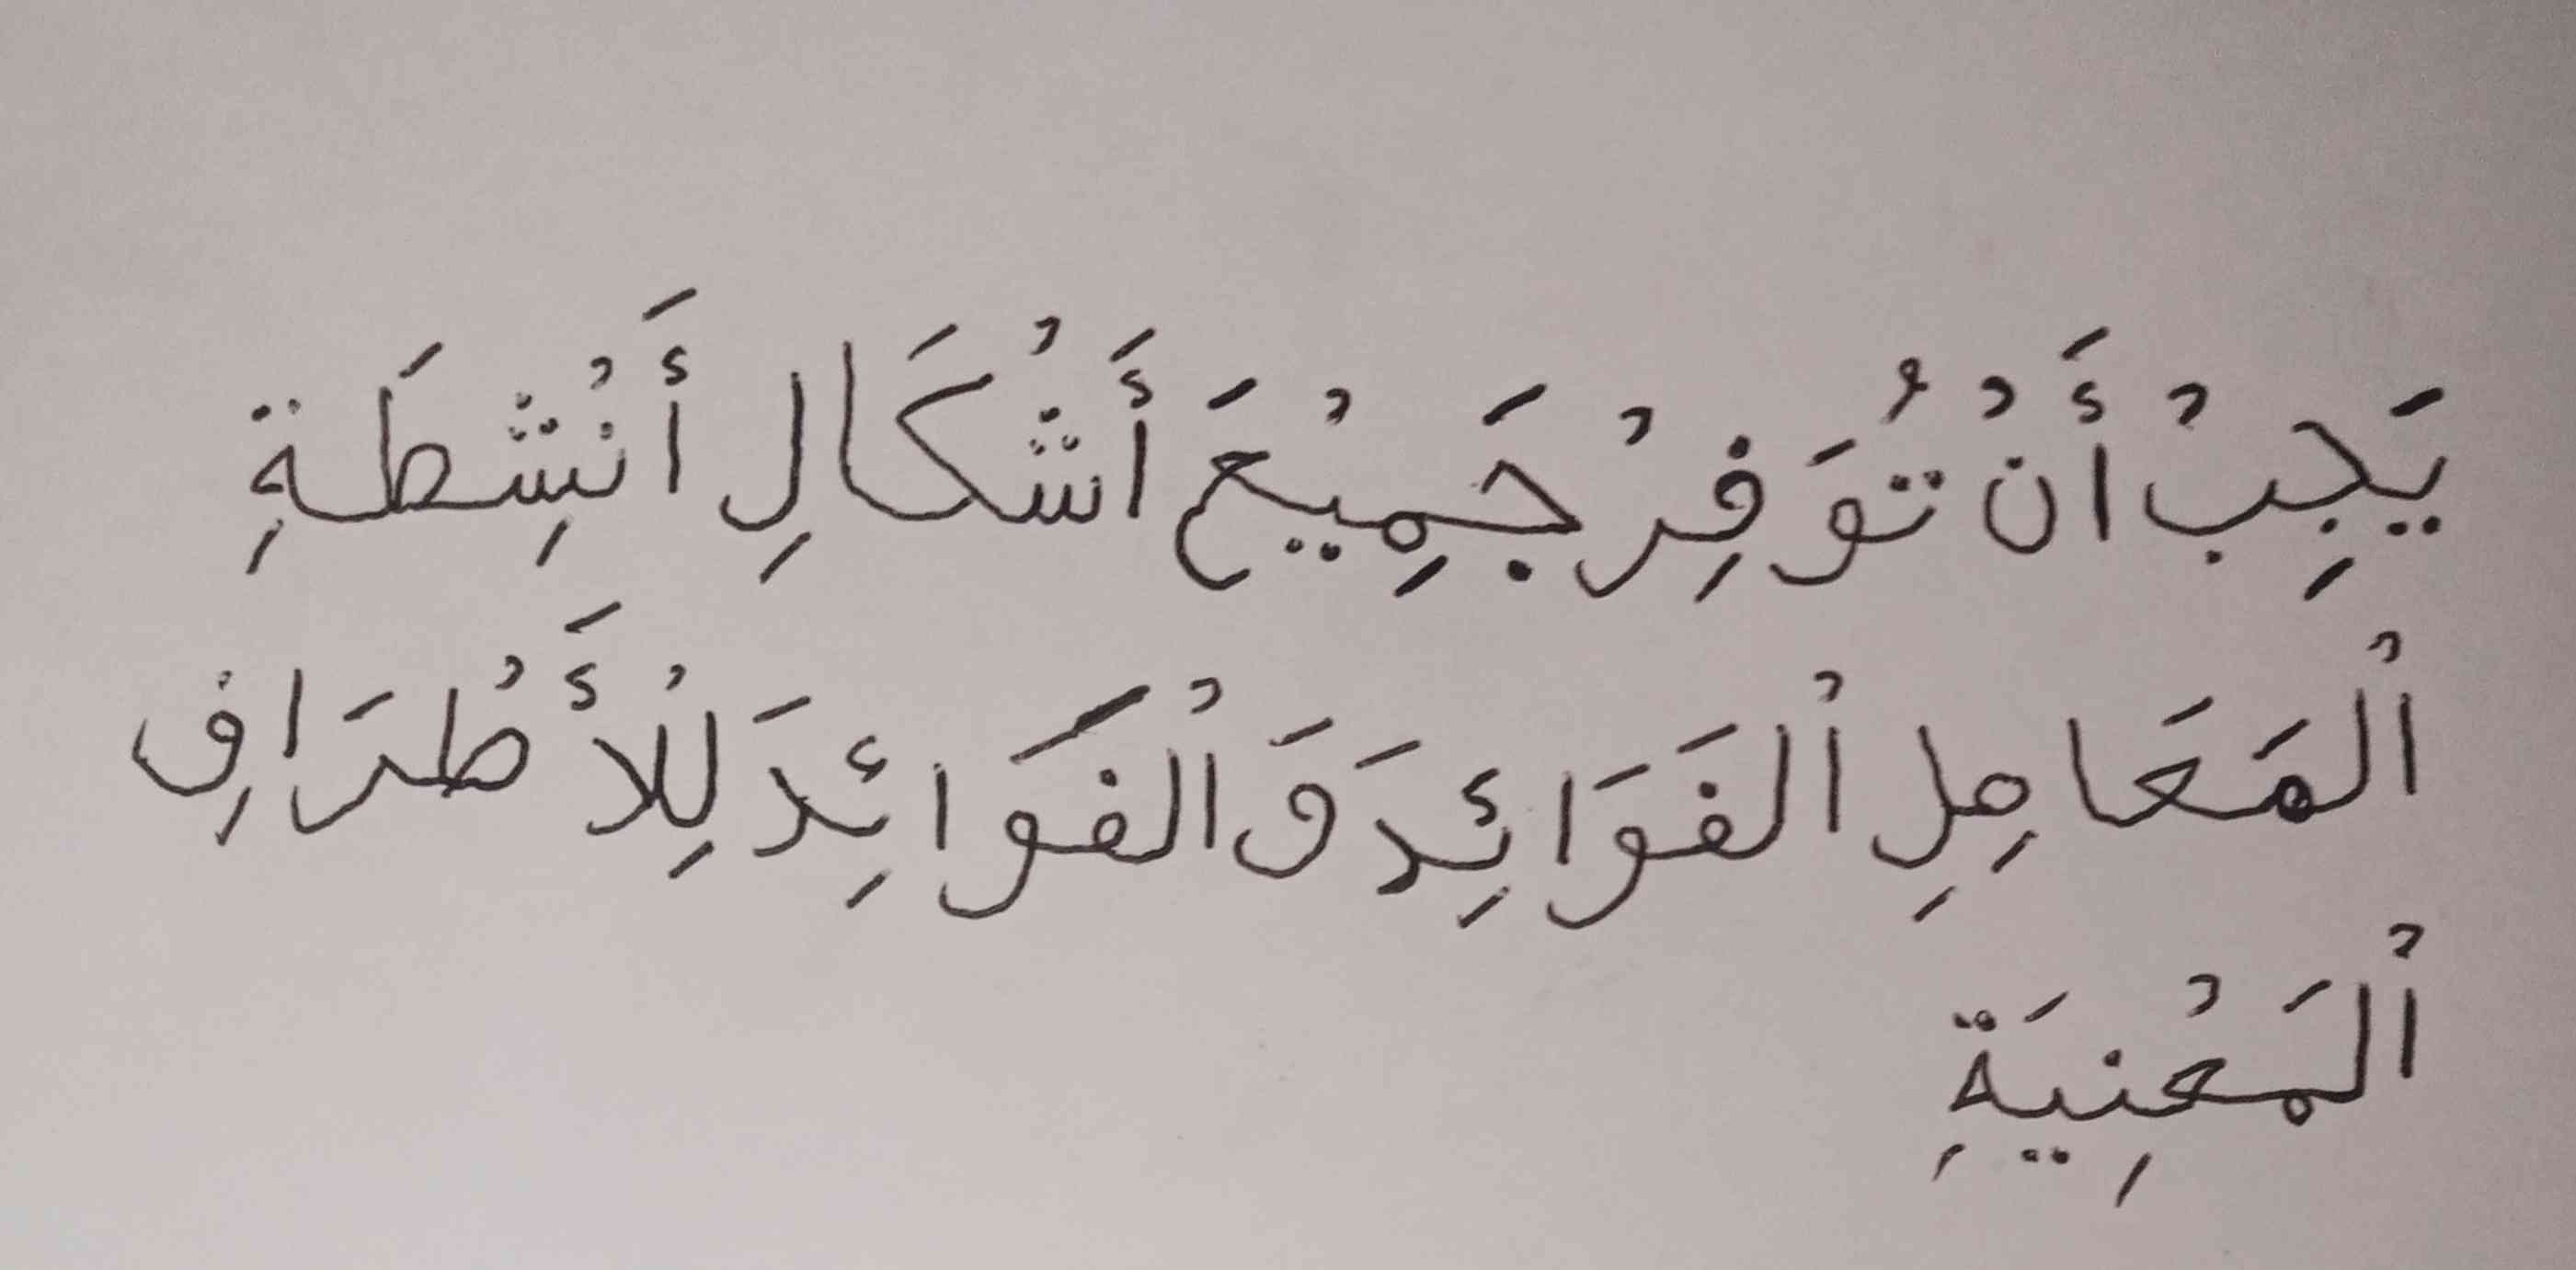 يَجِبْ أَنْ تُوَفِرْ جَمِيْعَ أَشْكَالِ أَنْشِطَةِ
اْلمَعَامِلِ اْلفَوَائِدَ وَ اْلفَوَائِدَ لِلْأَطْرَافِ
اْلمَعْنِيَةِ